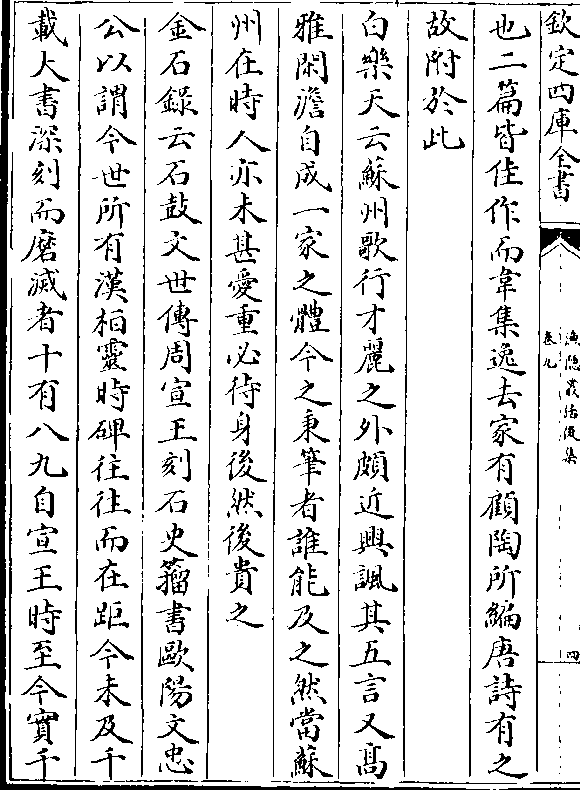 欽定四庫全書
漁隠叢話後集
卷九
四
也二篇皆佳作而韋集逸去家有顧陶所編唐詩有之
故附於此
白樂天云蘇州歌行才麗之外頗近興諷其五言又髙
雅閑澹自成一家之體今之秉筆者誰能及之然當蘇
州在時人亦未甚愛重必待身後然後貴之
金石錄云石鼓文世傳周宣王刻石史籀書歐陽文忠
公以謂今世所有漢桓靈時碑往往而在距今未及千
載大書深刻而磨滅者十有八九自宣王時至今實千